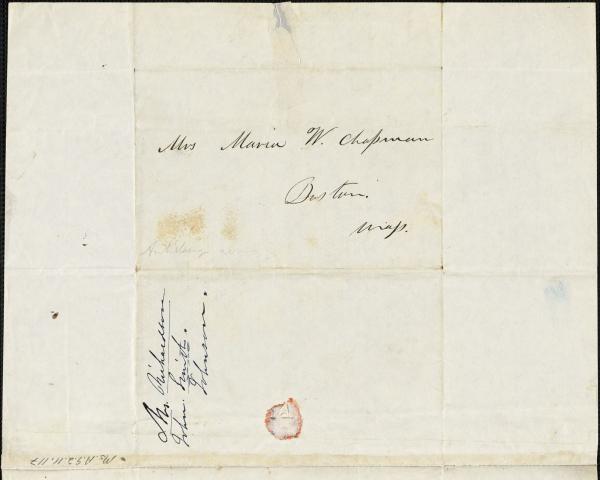 Mrs Maria W. Chapman
Boston.
Mass.
Mr. Richardson
John Smith.
Johnson.
Ms. A.9.2.11.117